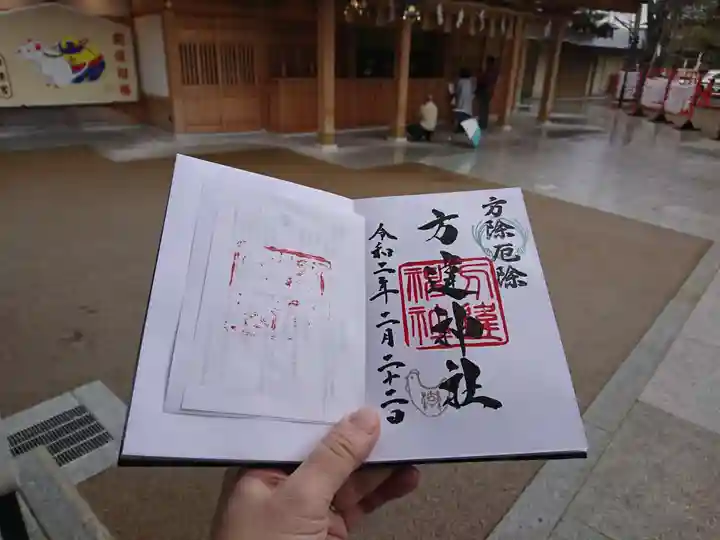 方除厄除
方違神社
令和二年二月二十二日
方違
神社